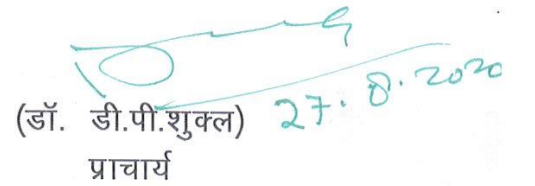 27.8.2020
(डॉ. डी.पी.शुक्ल)
प्राचार्य